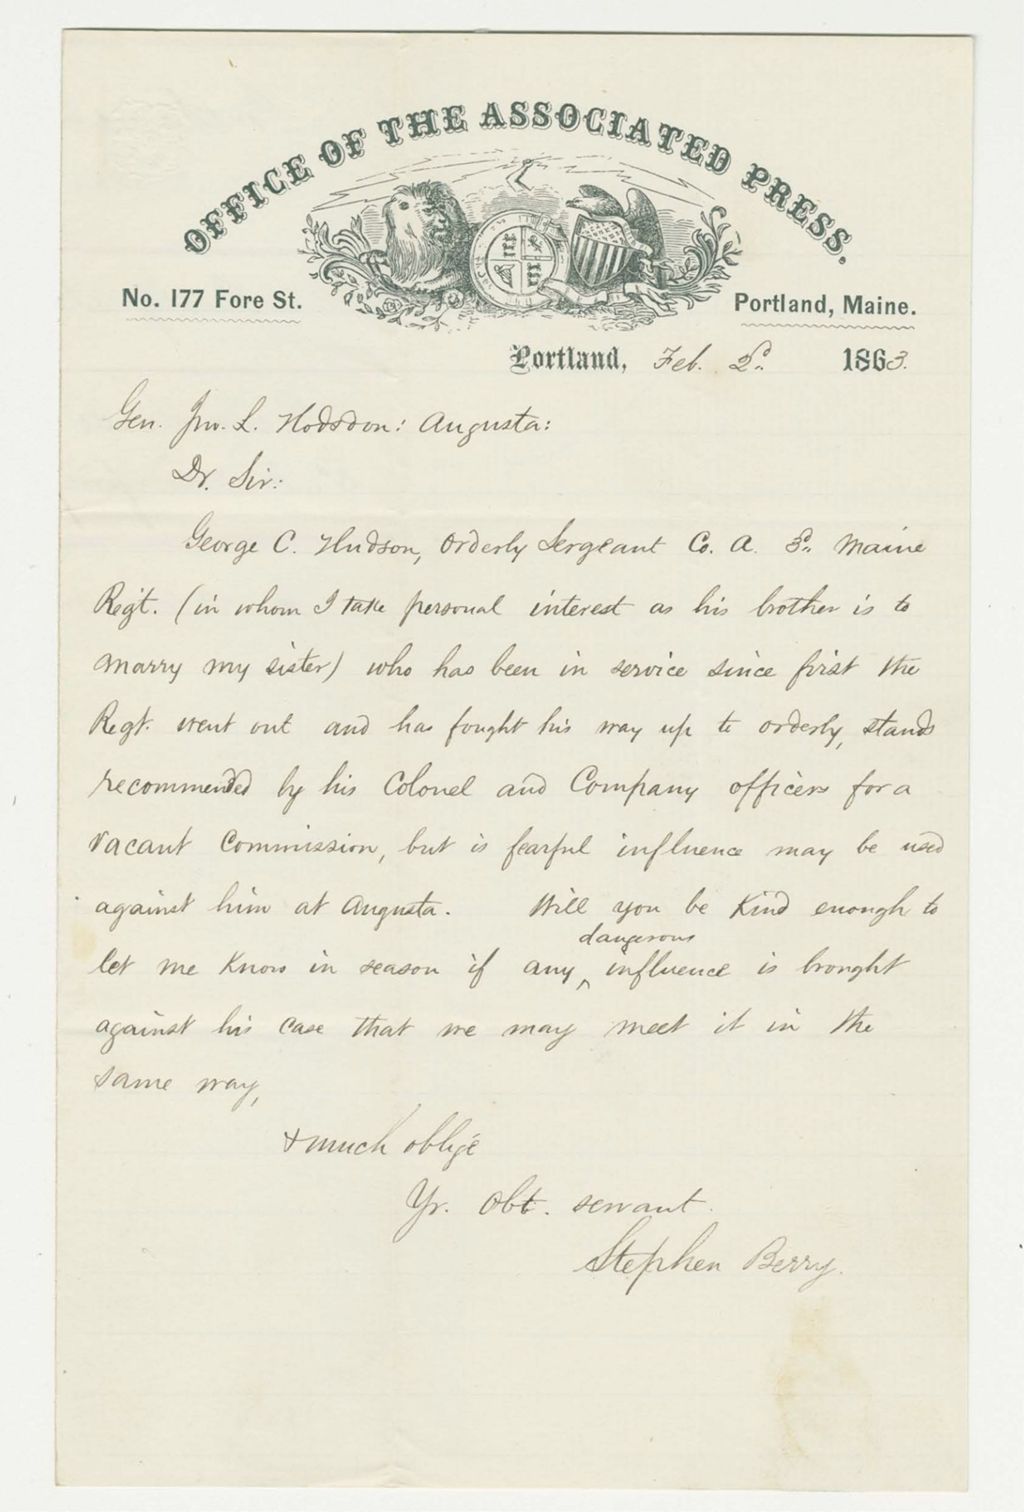 OFFICE OF THE ASSOCIATED PRESS.
No. 177 Fore St.
Portland, Maine.
Portland, Feb. 2d. 1863.
Gen. Jno. L. Hodsdon: Augusta:
Dr. Sir:
George C. Hudson, Orderly Sergeant Co. A. 3d. Maine
Regt. (in whom I take personal interest as his brother is to
marry my sister) who has been in service since first the
Regt. went out and has fought his way up to orderly, stands
recommended by his Colonel and Company officers for a
vacant Commission, but is fearful influence may be used
against him at Augusta. Will you be kind enough to
let me know in season if any ^ dangerous influence is brought
against his case that we may meet it in the
same way,
& much oblige
Yr. obt. servant.
Stephen Berry.